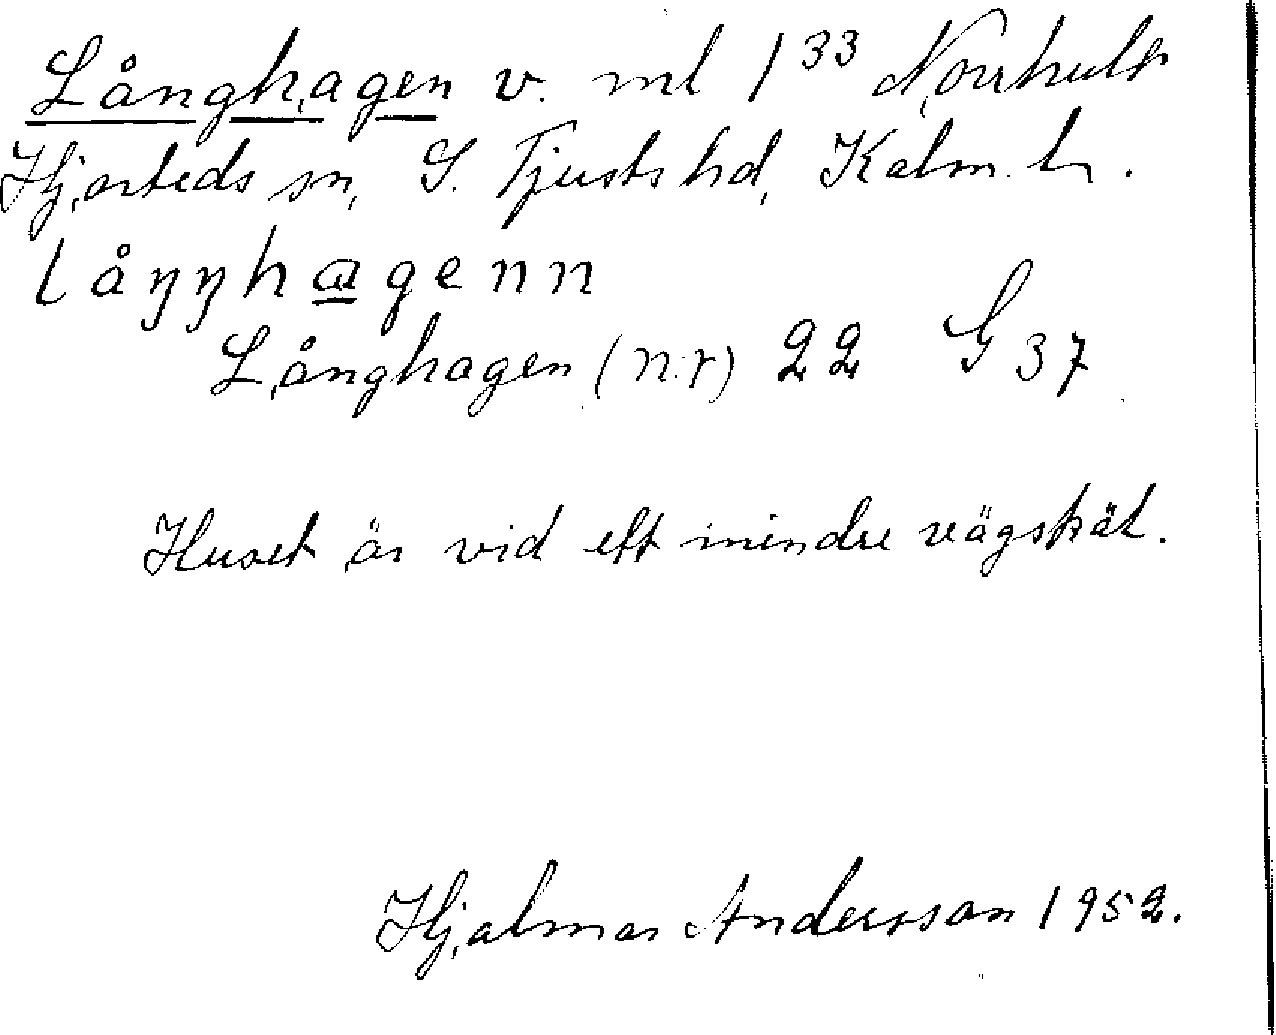 Långhagen v. ml 1³³ Norrhult
Hjorteds sn, S. Tjusts hd, Kalm. l.
låŋŋhagenn
Långhagen (n.r) 22 G 37
Huset är vid ett mindre vägskäl.
Hjalmar Andersson 1952.